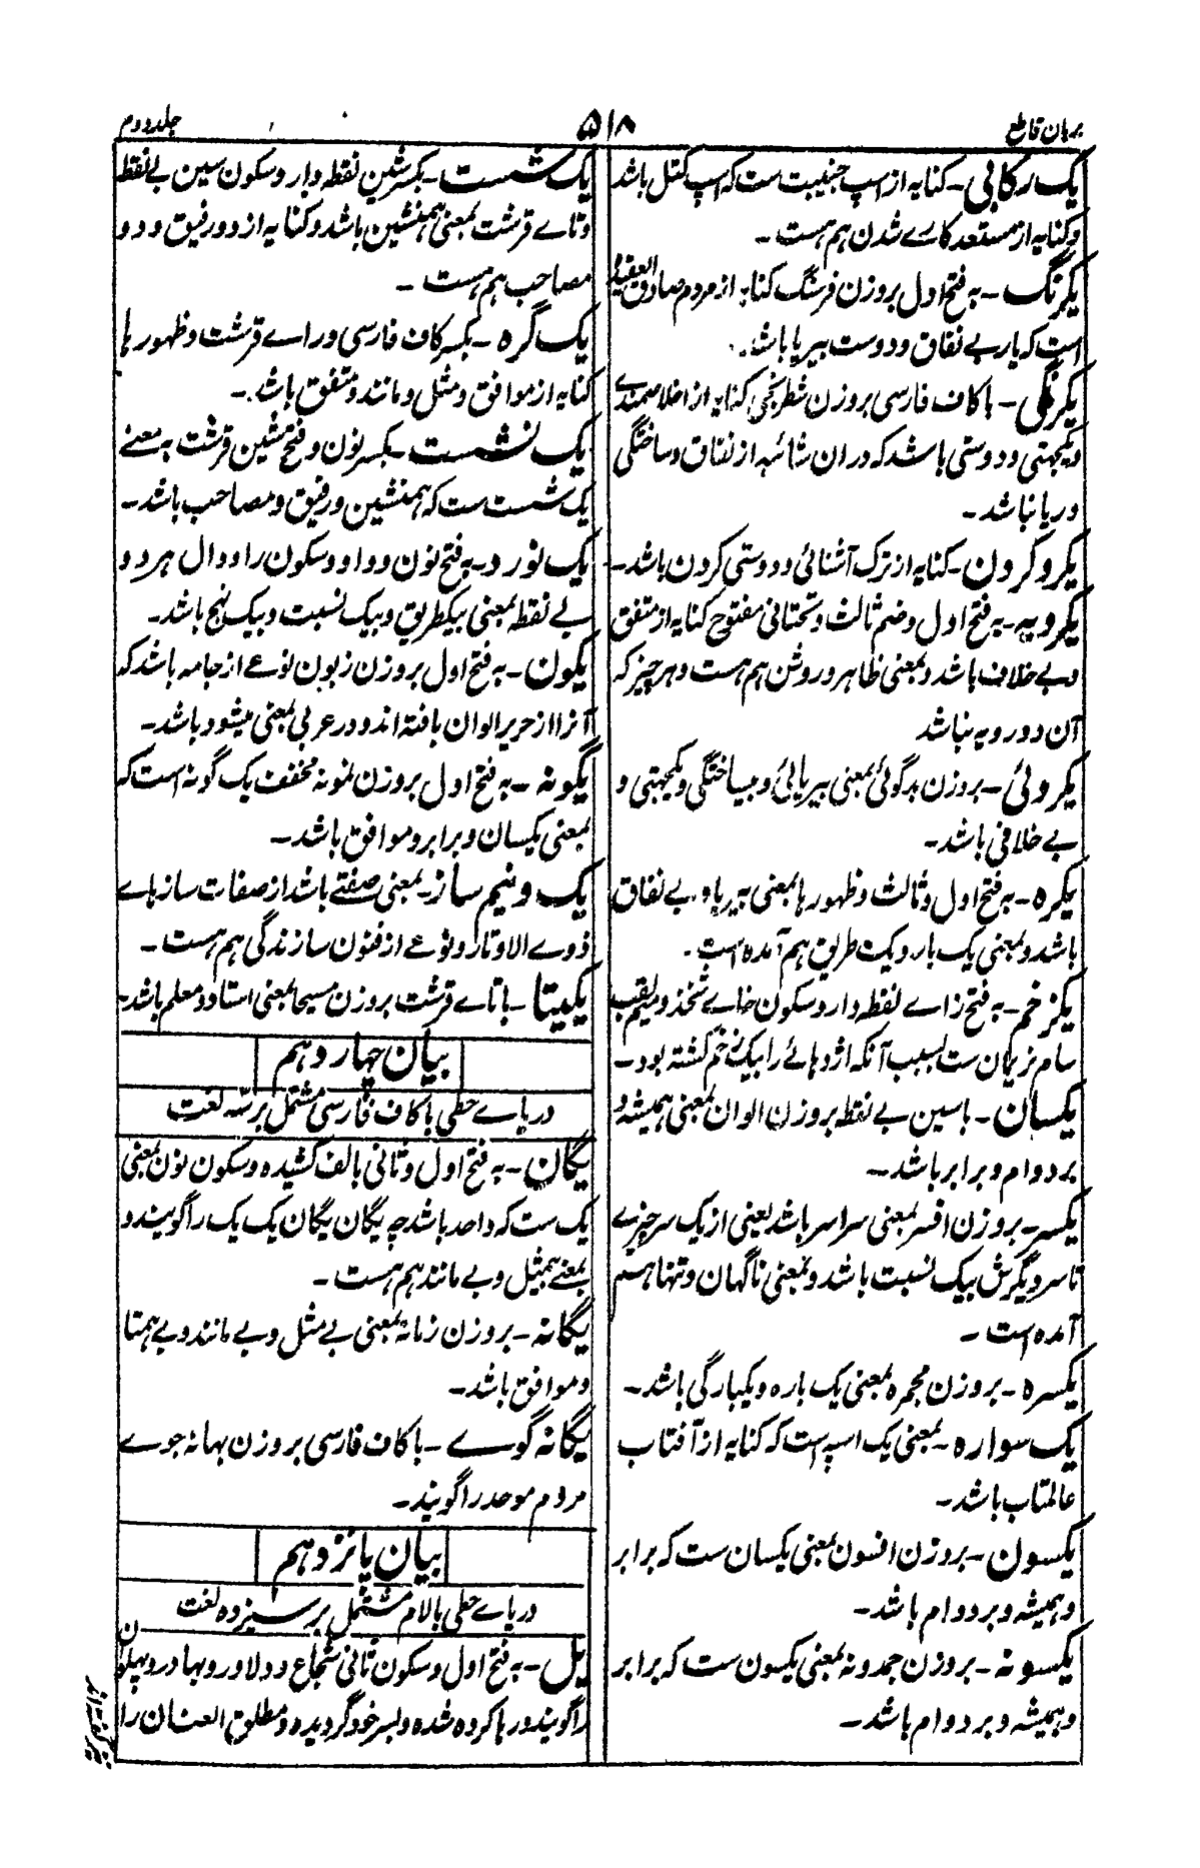 برهان قاطع
۵۱۸
جلد دوم
یک رکابی - کنایه از اسپ جنیبت ست که اسپ کتل باشد
و کنایه از مستعد کارے شدن هم هست -
یکرنگ - به فتح اول بر وزن فرسنگ کنایه از مردم صادق العقیده
است که یار بے نفاق و دوست بیریا باشد -
یکرنگی - با کاف فارسی بر وزن شطرنجی کنایه از اخلاصمندے
و یکجهتی و دوستی باشد که دران شائبه از نفاق و ساختگی
و ریا نباشد -
یکرو کردن - کنایه از ترک آشنائی و دوستی کردن باشد -
یکرویه - به فتح اول و ضم ثالث و تحتانی مفتوح کنایه از متفق
و بے خلاف باشد و بمعنی ظاهر و روشن هم هست و هر چیز که
آن دو رویه نباشد
یکروئی - بر وزن بدگوئی بمعنی بیریائی و بیساختگی و یکجهتی و
بے خلافی باشد -
یکره - به فتح اول و ثالث و ظهور ها بمعنی بیریا و بے نفاق
باشد و بمعنی یک بار و یک طریق هم آمده است -
یکزخم - به فتح زاے نقطه دار و سکون خاے ثخذ و میم لقب
سام نریمان ست بسبب آنکه اژدهائے را بیک زخم کشته بود -
یکسان - با سین بے نقطه بر وزن الوان بمعنی همیشه و
بر دوام و برابر باشد -
یکسر - بر وزن افسر بمعنی سراسر باشد یعنی از یک سر چیزے
تا سر دیگرش بیک نسبت باشد و بمعنی ناگهان و تنها هم
آمده است -
یکسره - بر وزن مجمره بمعنی یک باره و یکبارگی باشد -
یک سواره - بمعنی یک اسپه است که کنایه از آفتاب
عالمتاب باشد -
یکسون - بر وزن افسون بمعنی یکسان ست که برابر
و همیشه و بر دوام باشد -
یکسونه - بر وزن حمدونه بمعنی یکسون ست که برابر
و همیشه و بر دوام باشد -
یک شست - بکسر شین نقطه دار و سکون سین بے نقطه
و تاے قرشت بمعنی همنشین باشد و کنایه از دو رفیق و دو
مصاحب هم هست -
یک گره - بکسر کاف فارسی و راے قرشت و ظهور ها
کنایه از موافق و مثل و مانند و متفق باشد -
یک نشست - بکسر نون و فتح شین قرشت به معنے
یک شست ست که همنشین و رفیق و مصاحب باشد -
یک نورد - به فتح نون و واو و سکون را و دال هر دو
بے نقطه بمعنی بیکطریق و بیک نسبت و بیک نهج باشد -
یکون - به فتح اول بر وزن زبون نوعے از جامه باشد که
آنرا از حریر الوان بافته اند و در عربی بمعنی میشود باشد -
یکونه - به فتح اول بر وزن نمونه مخفف یک گونه است که
بمعنی یکسان و برابر و موافق باشد -
یک و نیم ساز - بمعنی صفتے باشد از صفات سازهاے
ذوے الاوتار و نوعے از فنون سازندگی هم هست -
یکیتا - با تاے قرشت بر وزن مسیحا بمعنی استاد و معلم باشد -
بیان چهاردهم
در یاے حطی با کاف فارسی مشتمل بر سه لغت
یگان - به فتح اول و ثانی بالف کشیده و سکون نون بمعنی
یک ست که واحد باشد چه یگان یگان یک یک را گویند و
بمعنے بیمثل و بے مانند هم هست -
یگانه - بر وزن زمانه بمعنی بے مثل و بے مانند و بے همتا
و موافق باشد -
یگانه گوے - با کاف فارسی بر وزن بهانه جوے
مردم موحد را گویند -
بیان پانزدهم
در یاے حطی با لام مشتمل بر سیزده لغت
یل - به فتح اول و سکون ثانی شجاع و دلاور و بهادر و پهلوان
را گویند و رها کرده شده و بسر خود گردیده و مطلق العنان را
نیز گفته اند